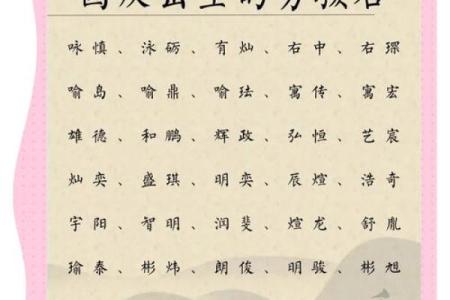 国庆出生的男孩名
咏慎、泳砺、有灿、右中、右璟
喻岛、喻鼎、喻珐、寓传、寓宏
雄德、和鹏、辉政、弘恒、艺宸
灿奕、盛琪、明奕、辰煊、浩奇
宇阳、智明、润斐、煊龙、舒胤
瑜泰、彬炜、朗俊、明骏、彬旭